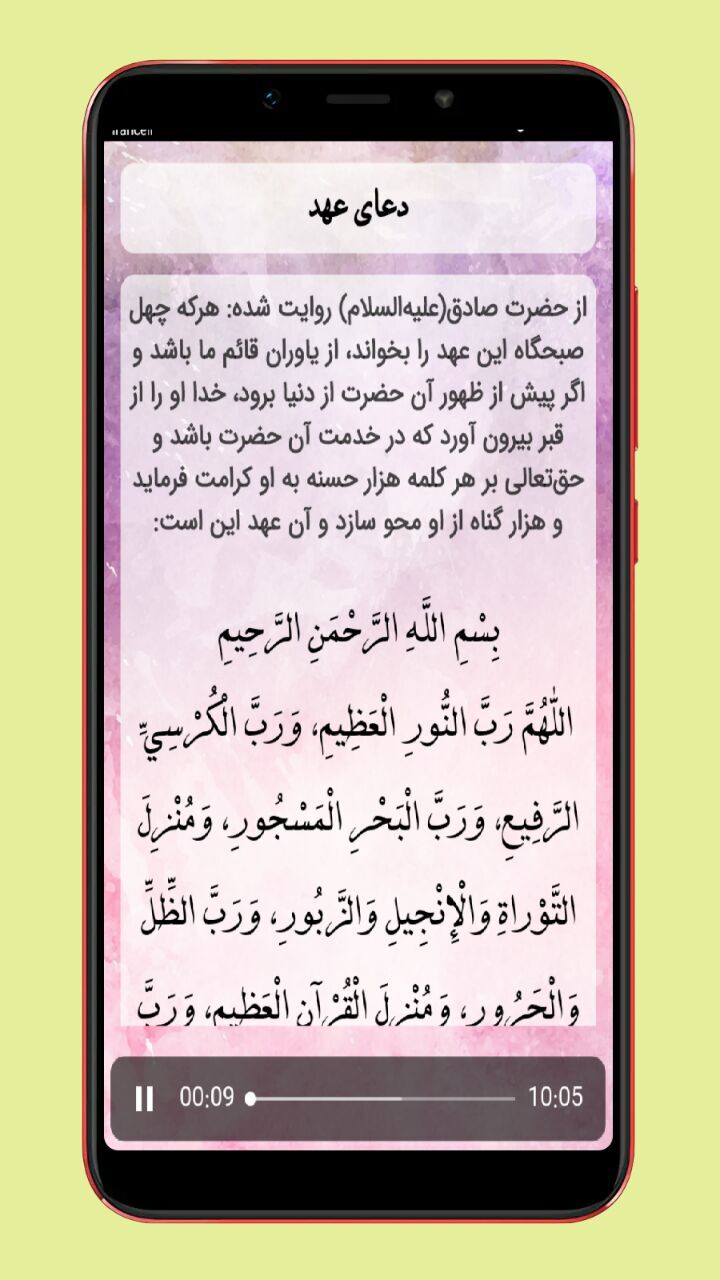 Irancell
دعای عهد
از حضرت صادق(علیه‌السلام) روایت شده: هرکه چهل
صبحگاه این عهد را بخواند، از یاوران قائم ما باشد و
اگر پیش از ظهور آن حضرت از دنیا برود، خدا او را از
قبر بیرون آورد که در خدمت آن حضرت باشد و
حق‌تعالی بر هر کلمه هزار حسنه به او کرامت فرماید
و هزار گناه از او محو سازد و آن عهد این است:
بِسْمِ اللَّهِ الرَّحْمَنِ الرَّحِيمِ
اللّٰهُمَّ رَبَّ النُّورِ الْعَظِيمِ، وَرَبَّ الْكُرْسِيِّ
الرَّفِيعِ، وَرَبَّ الْبَحْرِ الْمَسْجُورِ، وَمُنْزِلَ
التَّوْراةِ وَالْإِنْجِيلِ وَالزَّبُورِ، وَرَبَّ الظِّلِّ
وَالْحَرُورِ، وَمُنْزِلَ الْقُرْآنِ الْعَظِيمِ، وَرَبَّ
00:09 10:05